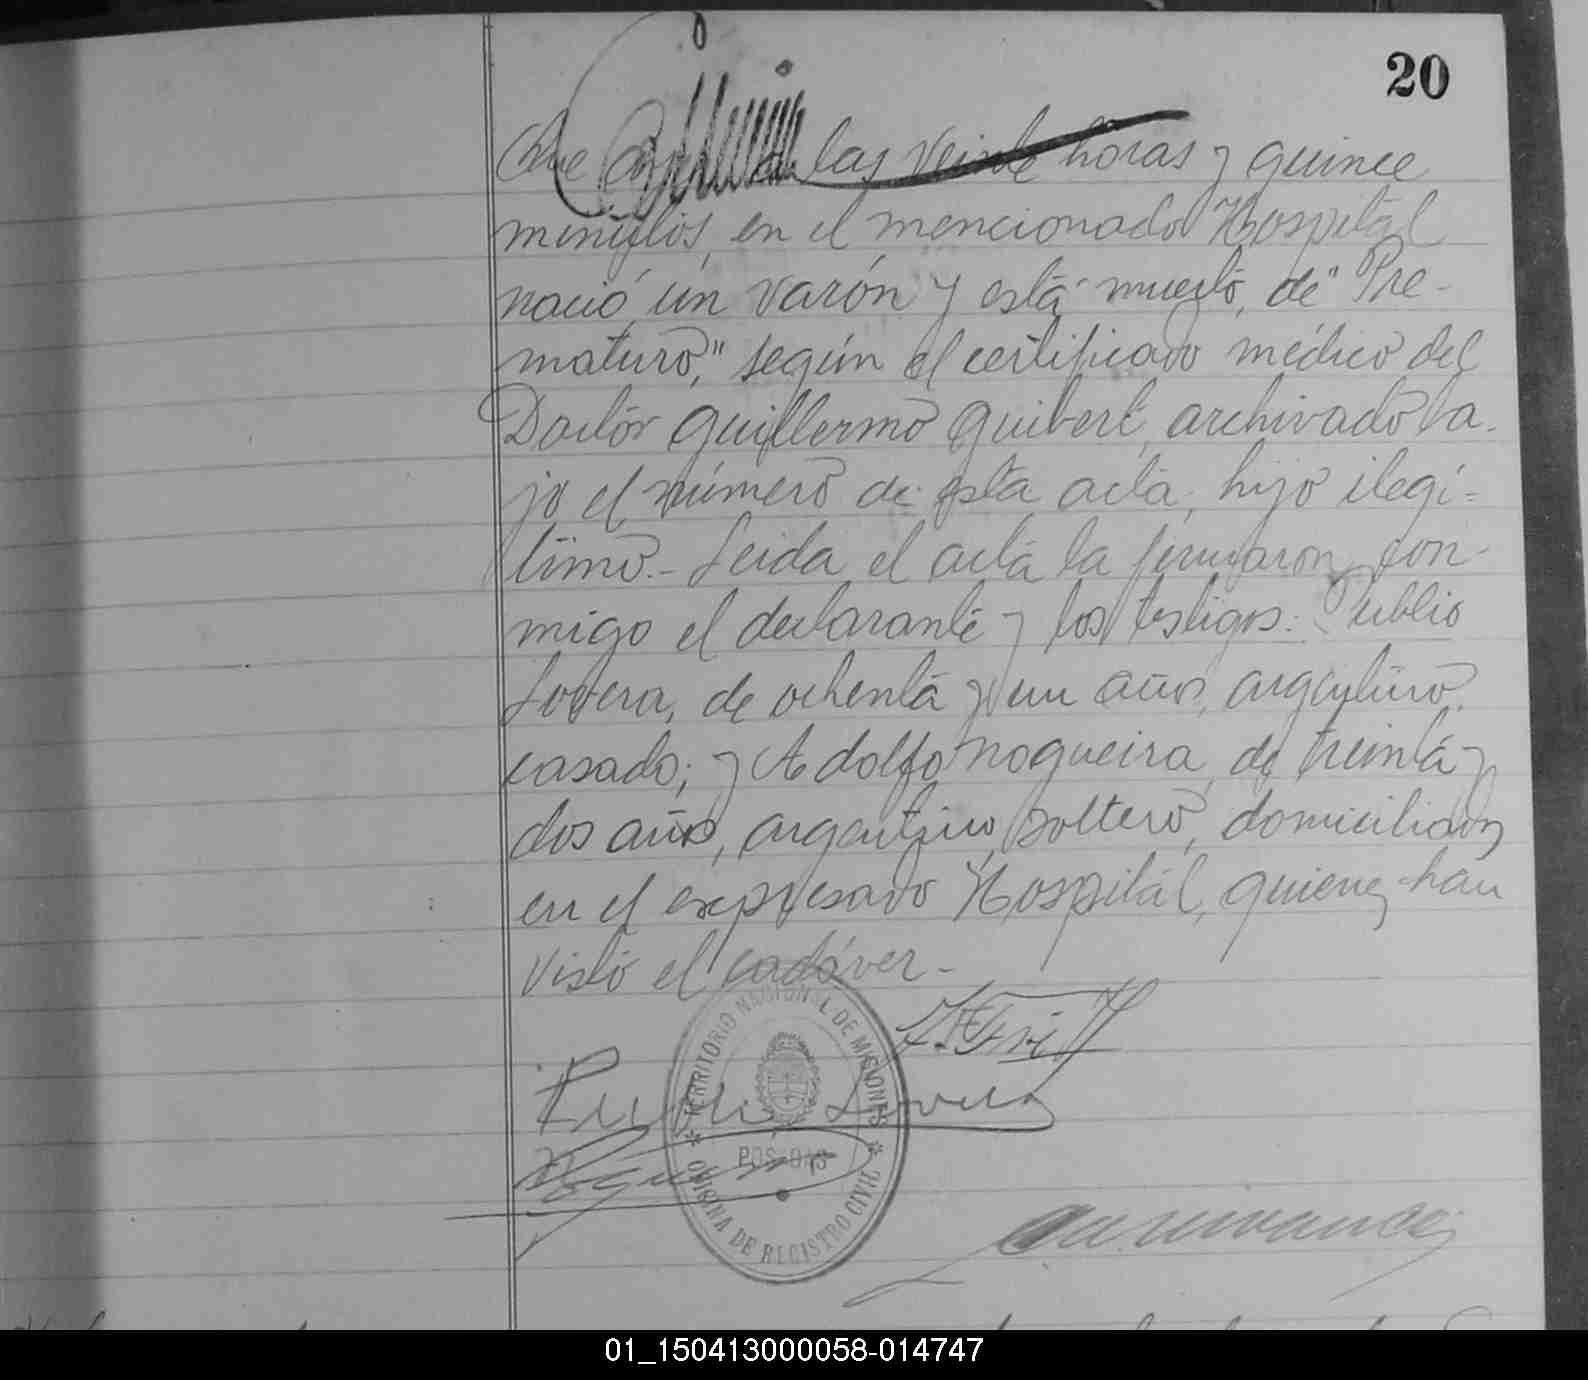 20
Que ayer a las veinte horas y quince
minutos, en el mencionado Hospital
nació un varón y está muerto, de "Pre-
maturo," según el certificado médico del
Doctór Guillermo Guibert, archivado ba-
jo el número de esta acta, hijo ilegí=
timo.- Leida el acta la firmaron con-
migo el declarante y los testigos: Publio
Lovera, de ochenta y un años, argentino,
casado; y Adolfo Nogueira, de treinta y
dos años, argentino, soltero, domiciliados
en el expresado Hospital, quienes han
visto el cadáver.-
TERRITORIO NACIONAL DE MISIONES
Publio Lovera
POSADAS
OFICINA DE REGISTRO CIVIL
01_150413000058-014747